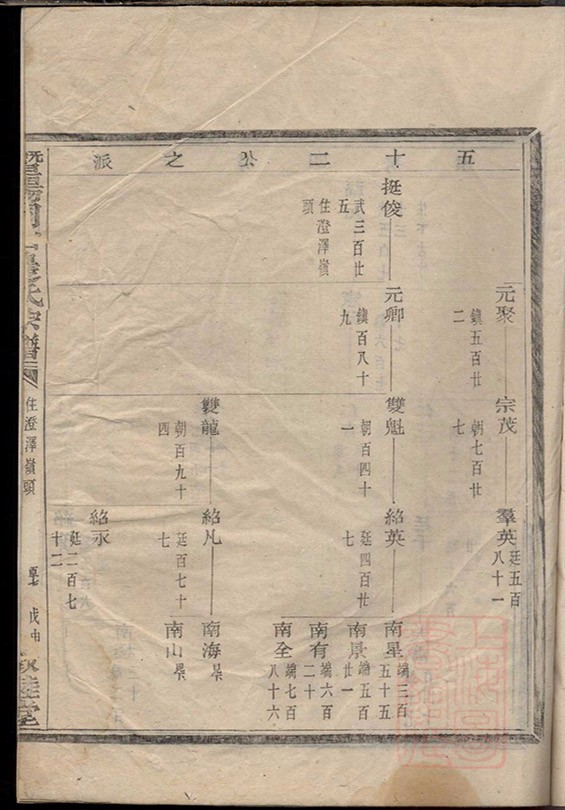 五十二公之派
元聚
鎮五百廿
二
宗茂
朝七百廿
七
羣英
廷五百
八十一
挺俊
武三百廿
五
住澄澤嶺
頭
元卿
鎮百八十
九
雙魁
朝百四十
一
紹英
廷四百廿
七
南星
端三百
五十五
南景
端五百
廿一
南有
端六百
二十
南全
端七百
八十六
雙龍
朝百九十
四
紹凡
廷百七十
七
南海
南山
紹永
廷二百七
十二
氏宗譜
住澄澤嶺頭
堂